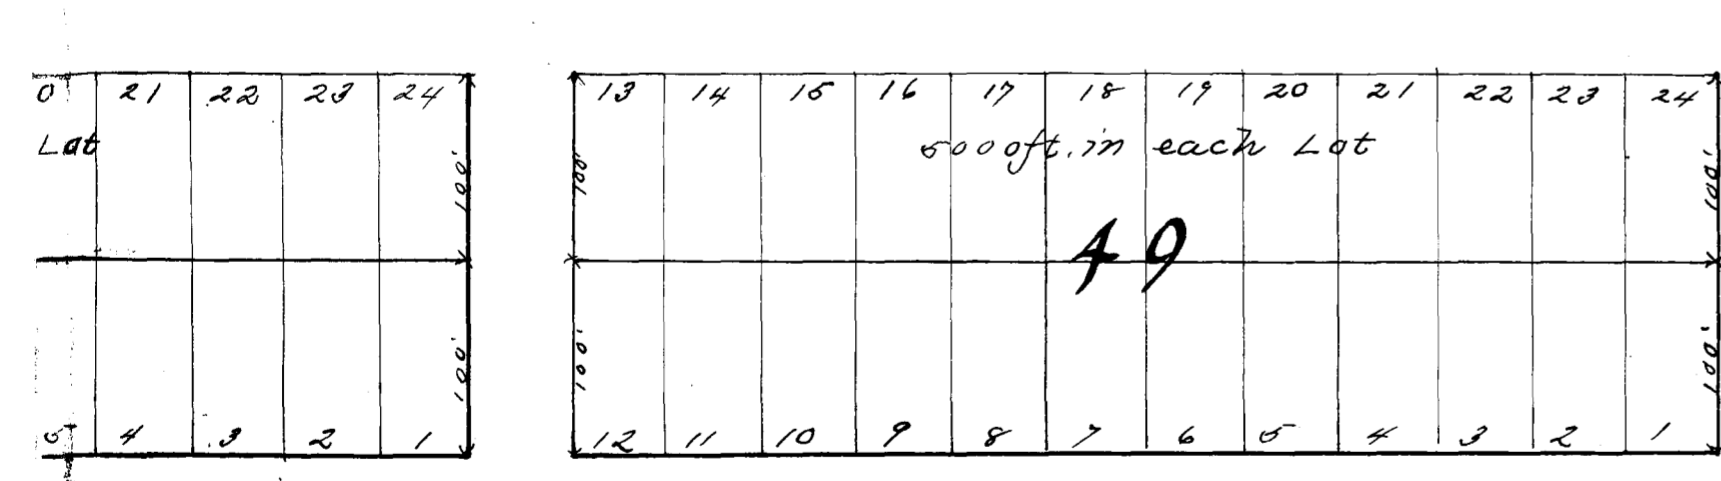 0 21 22 23 24
Lot
100'
100'
5 4 3 2 1
13 14 15 16 17 18 19 20 21 22 23 24
5000ft. in each Lot
100' 100'
49
100' 100'
12 11 10 9 8 7 6 5 4 3 2 1